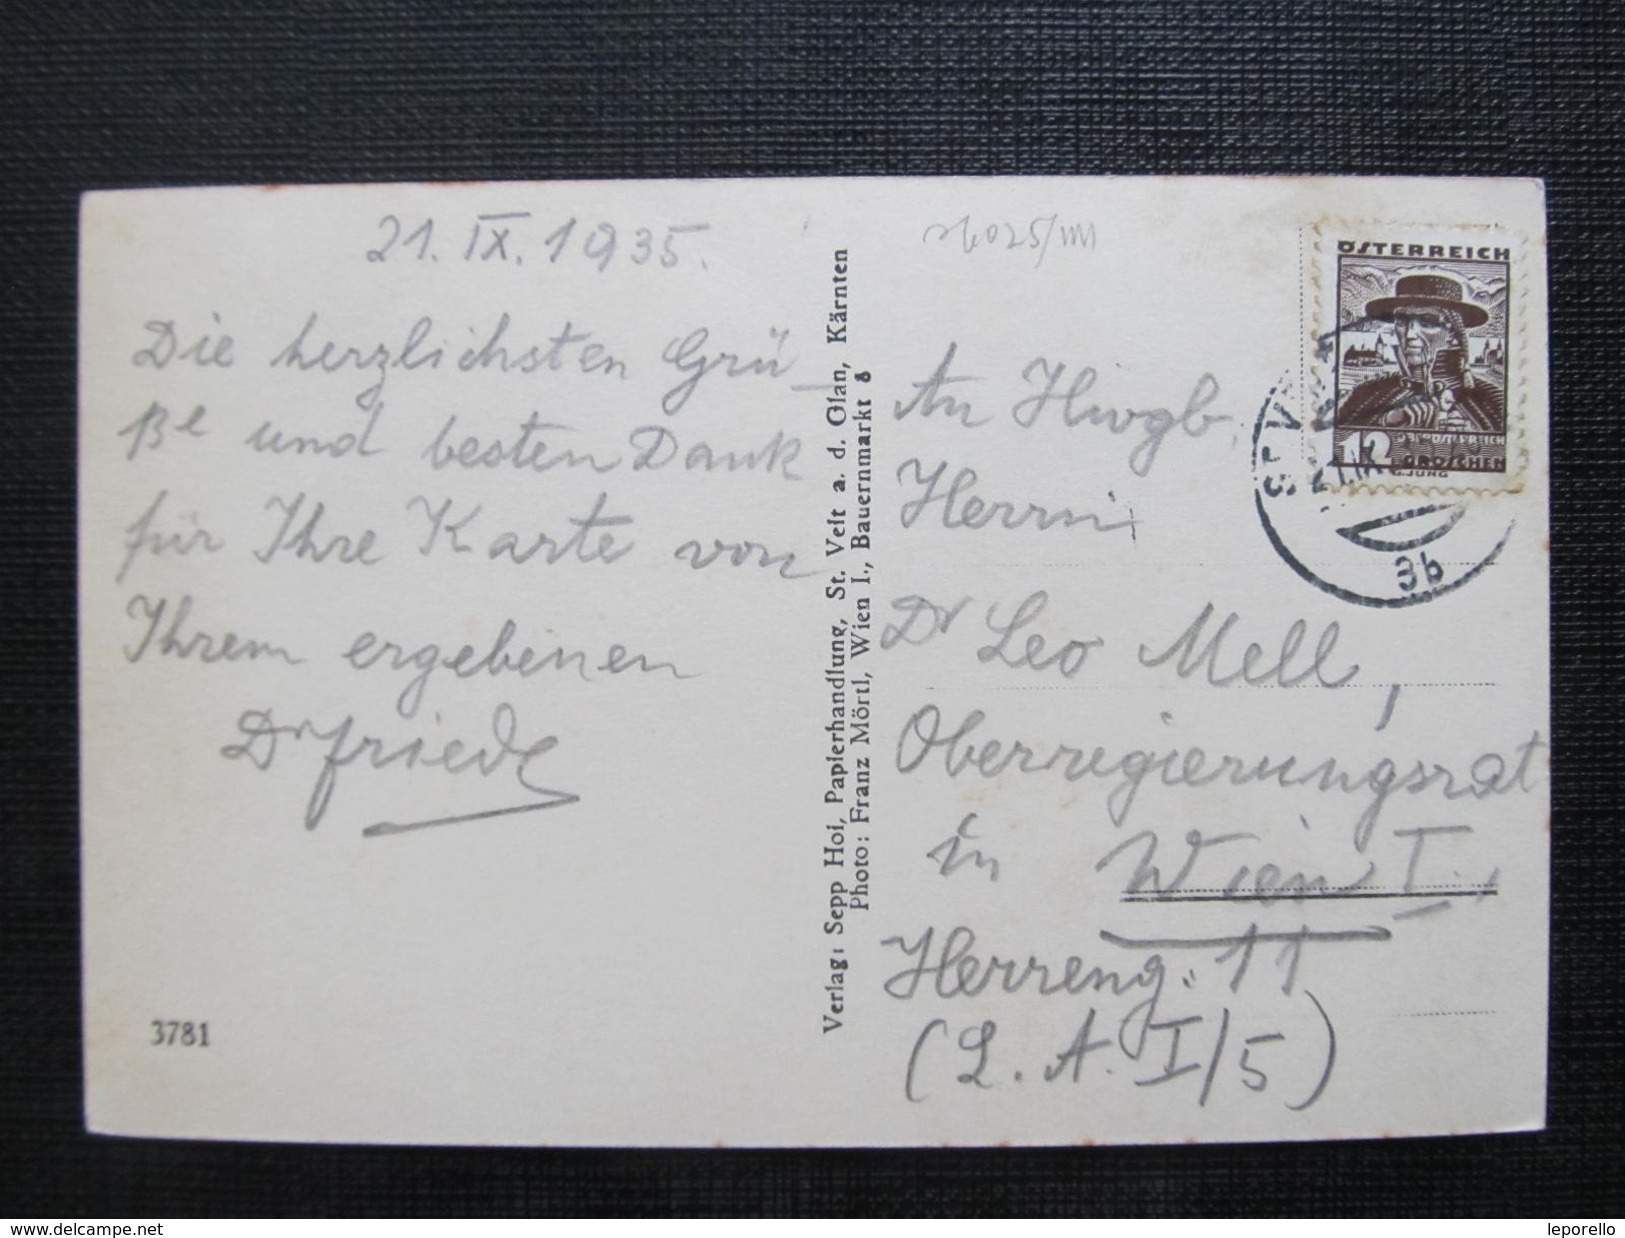 21. IX. 1935.
Die herzlichsten Grü-
ße und besten Dank
für Ihre Karte von
Ihrem ergebenen
Dr Friedl
3781
Verlag: Sepp Hoi, Papierhandlung, St. Veit a. d. Glan, Kärnten
Photo: Franz Mörtl, Wien I., Bauernmarkt 8
ÖSTERREICH
12
GROSCHEN
3b
An Hwgb.
Herrn
Dr Leo Mell,
Oberregierungsrat
in Wien I.,
Herreng. 11
(L. A. I/5)
www.delcampe.net
leporello